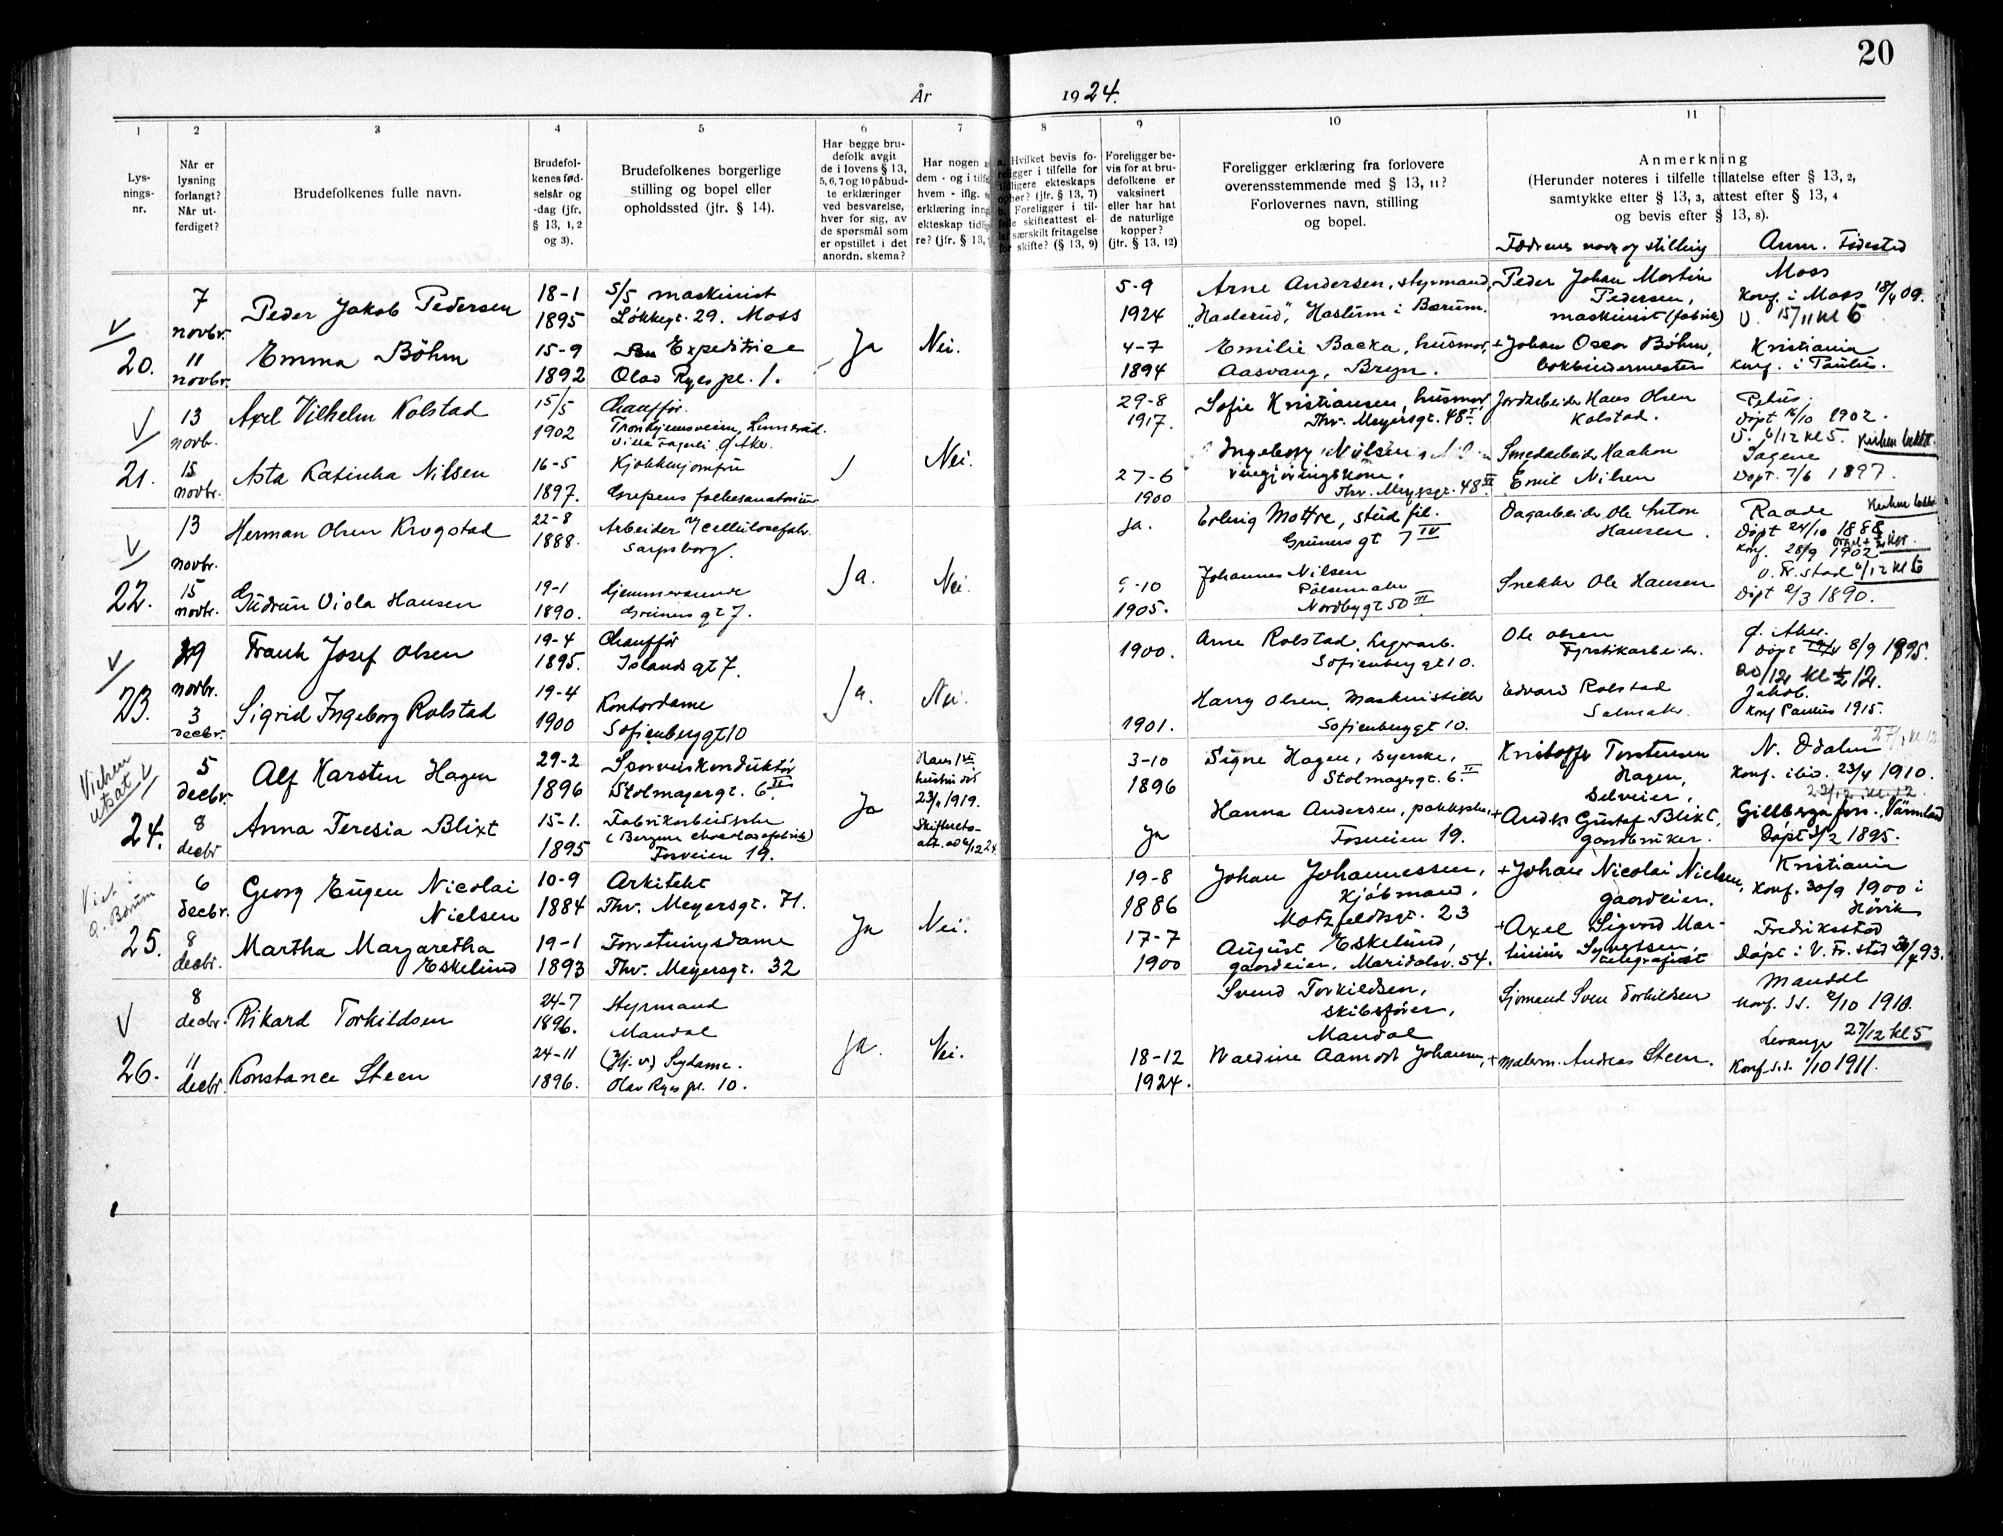 20
År 1924.
1 2 3 4 5 6 7 8 9 10 11
Lys-
nings-
nr.
Når er
lysning
forlangt?
Når ut-
ferdiget?
Brudefolkenes fulle navn.
Brudefol-
kenes fød-
selsår og
-dag (jfr.
§ 13, 1, 2
og 3).
Brudefolkenes borgerlige
stilling og bopel eller
opholdssted (jfr. § 14).
Har begge bru-
defolk avgit
de i lovens § 13,
5, 6, 7 og 10 påbud-
te erklæringer
ved besvarelse,
hver for sig, av
de spørsmål som
er opstillet i det
anordn. skema?
Har nogen
dem - og i
hvem - iflg.
erklæring
ekteskap
re? (jfr. § 13,
Hvilket bevis fo-
religger i tilfelle for
tidligere ekteskaps
opher? (jfr. § 13, 7)
Foreligger i til-
felle skifteattest el-
ler særskilt fritagelse
for skifte? (§ 13, 9)
Foreligger be-
vis for at bru-
defolkene er
vaksinert
eller har hat
de naturlige
kopper?
(jfr. § 13, 12)
Foreligger erklæring fra forlovere
overensstemmende med § 13, 11?
Forlovernes navn, stilling
og bopel.
Anmerkning
(Herunder noteres i tilfelle tillatelse efter § 13, 2,
samtykke efter § 13, 3, attest efter § 13, 4
og bevis efter § 13, 8).
Fædrenes navn og stilling
Anm. Fødested
V
20.
7
novbr.
11
novbr.
Peder Jakob Pedersen
Emma Böhm
18-1
1895
15-9
1892
S/S maskinist
Løkkegt. 29. Moss
Expeditrice
Olav Ryes pl. 1.
Ja
Nei.
5-9
1924
4-7
1894
Arne Andersen, styrmand,
Haslum i Bærum.
Emilie Backa, husmor,
Aasvang, Bryn.
Peder Johan Martin
Pedersen,
maskinist (fabrik)
+Johan Oscar Böhm,
bokbindermester
Moss
Konf. i Moss 18/4 09.
V. 15/11 kl 5
Kristiania
Konf. i Paulus.
V
21.
13
novb.
15
novbr.
Axel Vilhelm Kolstad
Asta Katinka Nilsen
15/5
1902
16-5
1897.
Chauffør.
Trondhjemsveien, Linnerud.
Kjøkkenjomfru
Grefsens folkesanatorium
J
Nei.
29-8
1917.
27-6
1900
Sofie Kristiansen, husmor,
Thv. Meyersgt. 48 I
Ingeborg Nilsen
rengjøringskone,
Thv. Meyersgt. 48 II
Jordarbeider Hans Olsen
Kolstad.
Smedarbeider Haakon
Emil Nilsen
Petrus.
Døpt 1902.
V. 6/12 kl 5. Kirken lukket
Sagene
Døpt. 7/6 1897.
V
22.
13
novbr.
15
novbr.
Herman Olsen Krogstad
Gudrun Viola Hansen
22-8
1888.
19-1
1890.
Arbeider v/ Cellulosefabr.
Sarpsborg.
Hjemmeværende
Grüners gt 7.
Ja.
Nei.
ja.
-10
1905.
Erling Mottre, stud fil.
Grüners gt 7 IV
Johannes Nilsen
Pølsemaker
Nordbygt 50 III
Dagarbeider Ole Anton
Hansen.
Snekker Ole Hansen
Raade
Døpt 24/10 1888
Konf. 28/9 1902
6/12 kl 6
Døpt 2/3 1890.
V
23.
29
novbr.
3
decbr.
Frank Josef Olsen
Sigrid Ingeborg Rolstad
19-4
1895.
19-4
1900
Chauffør
Islands gt 7.
Kontordame
Sofienberggt 10
Ja.
Nei.
1900.
1901.
Arne Rolstad, lagerarb.
Sofienberg gt 10.
Harry Olsen, Maskinstiller
Sofienberggt 10.
Ole Olsen
Fyrstikarbeider.
Edvard Rolstad
Salmaker.
Ø. Aker.
Døpt 8/9 1895.
20/12 kl 1/2 12.
Jakob.
Konf Paulus 1915.
Vielsen
utsat V
24.
5
decbr.
8
decbr
Alf Karsten Hagen
Anna Teresia Blixt
29-2
1896
15-1.
1895
Sporveiskonduktør
Stolmagergt. 6 II
Fabrikarbeiderske
(Bergene chocoladefabrik)
Fosveien 19.
Ja
Hans 1ste
hustru død
23/1 1919.
Skifterets-
att. ad 4/12 24
3-10
1896
ja
Signe Hagen, syerske,
Stolmagergt. 6 II
Hanna Andersen, pakkerske,
Fosveien 19.
Kristoffer Torstensen
Hagen,
selveier,
+Anders Gustaf Blixt,
gaardbruker.
27/1 kl. 12
N. Odalen
Konf. ibid. 23/4 1910.
22/12 kl. 12
Gillberga fors., Värmland
Døpt 3/2 1895.
Viet i
Ø. Bærum
25.
6
decbr.
8
decbr.
Georg Eugen Nicolai
Nielsen
Martha Margaretha
Eskelund
10-9
1884
19-1
1893
Arkitekt
Thv. Meyersgt. 71.
Forretningsdame
Thv. Meyersgt. 32
Ja
Nei.
19-8
1886
17-7
1900
Johan Johannessen,
Kjøbmand,
Motzfeldtsgt. 23
August Eskelund,
gaardeier, Maridalsv. 54.
+Johan Nicolai Nielsen,
gaardeier.
+Axel Sigvard Mar-
tinius Syvertsen,
telegrafist
Kristiania
Konf. 30/9 1900 i
Høvik
Fredriksstad
Døpt i V. Fr.stad 30/4 93.
V
26.
8
decbr.
11
decbr.
Rikard Torkildsen
Konstance Steen
24-7
1896.
24-11
1896.
Styrmand
Mandal
(Hj. v.) Sydame.
Olav Ryes pl. 10.
Ja.
Nei.
18-12
1924.
Svend Torkildsen,
skibsfører,
Mandal
Waldine Aamodt Johansen,
Sjømand Sven Torkildsen
+Malerm. Andreas Steen.
Mandal
Konf. s.s. 2/10 1910.
27/12 kl 5
Levanger
Konf. s.s. 1/10 1911.